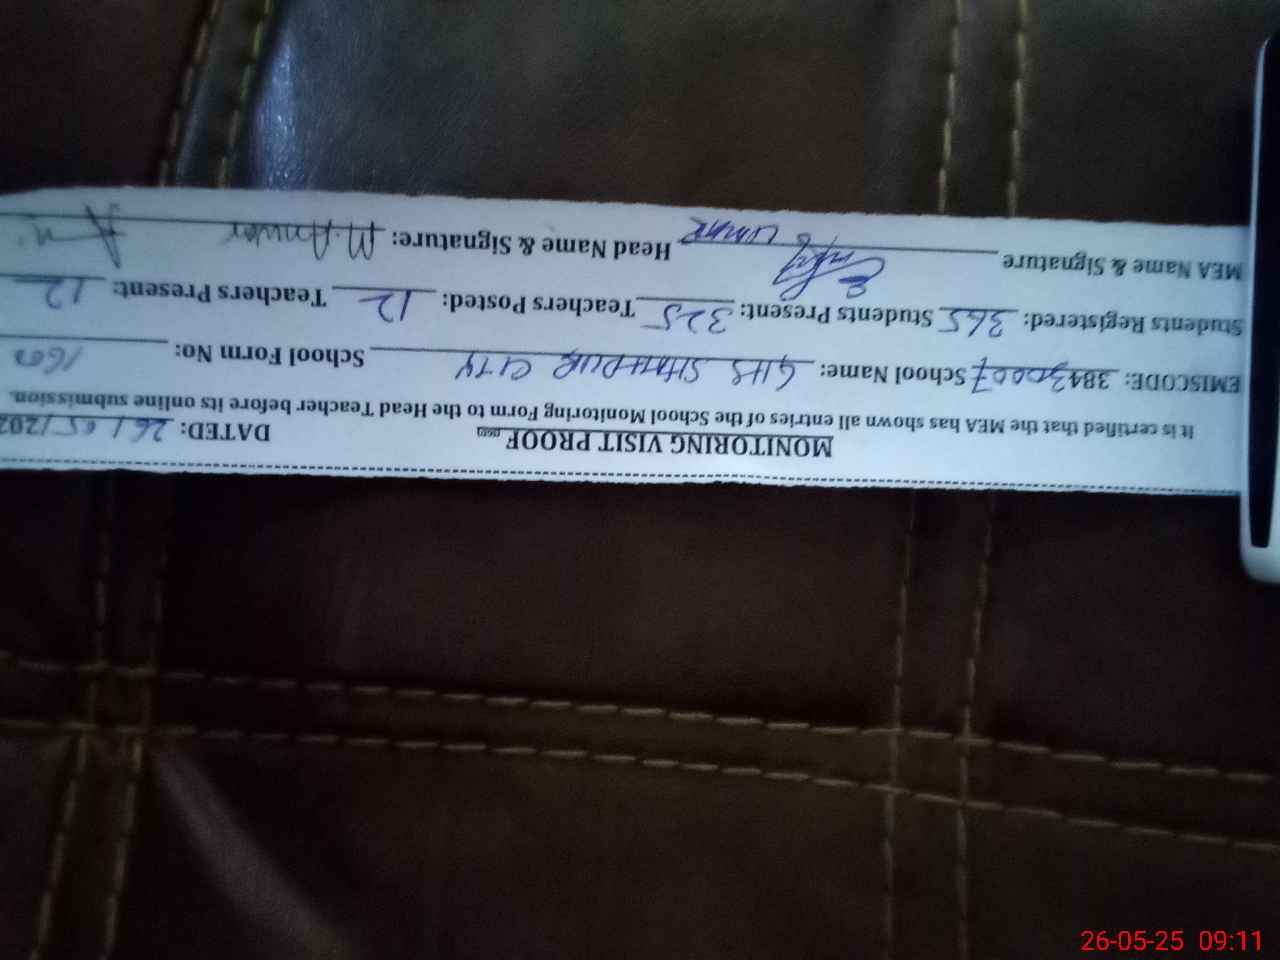 MONITORING VISIT PROOF DATED: 26/05/202
It is certified that the MEA has shown all entries of the School Monitoring Form to the Head Teacher before its online submission.
EMISCODE: 38430007 School Name: GHS SHAHPUR CITY School Form No: 1600
Students Registered: 365 Students Present: 325 Teachers Posted: 12 Teachers Present: 12
MEA Name & Signature UMAR Head Name & Signature: M. Anwar
26-05-25 09:11